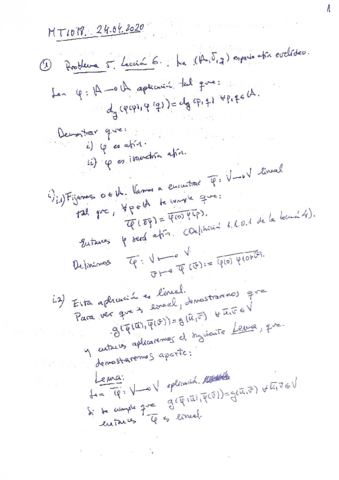 1
MT1018. 24.04.2020
① Problema 5. Lección 6. Sea (A, V, g) espacio afín euclídeo.
Sea φ: A → A aplicación tal que:
dg(φ(p), φ(q)) = dg(p, q) ∀p,q ∈ A.
Demostrar que:
i) φ es afín.
ii) φ es isometría afín.
i) i.1) Fijamos o ∈ A. Vamos a encontrar φ̄: V → V lineal
tal que, ∀p ∈ A se cumple que:
φ̄(op) = φ(o)φ(p).
Entonces φ será afín. (Definición de la lección 4).
Definimos φ̄: V → V
v → φ̄(v) := φ(o)φ(o+v).
i.2) Esta aplicación es lineal.
Para ver que es lineal, demostraremos que
g(φ̄(u), φ̄(v)) = g(u, v) ∀ u, v ∈ V
y entonces aplicaremos el siguiente Lema, que
demostraremos aparte:
Lema:
Sea φ̄: V → V aplicación.
Si se cumple que g(φ̄(u), φ̄(v)) = g(u, v) ∀ u, v ∈ V
entonces φ̄ es lineal.